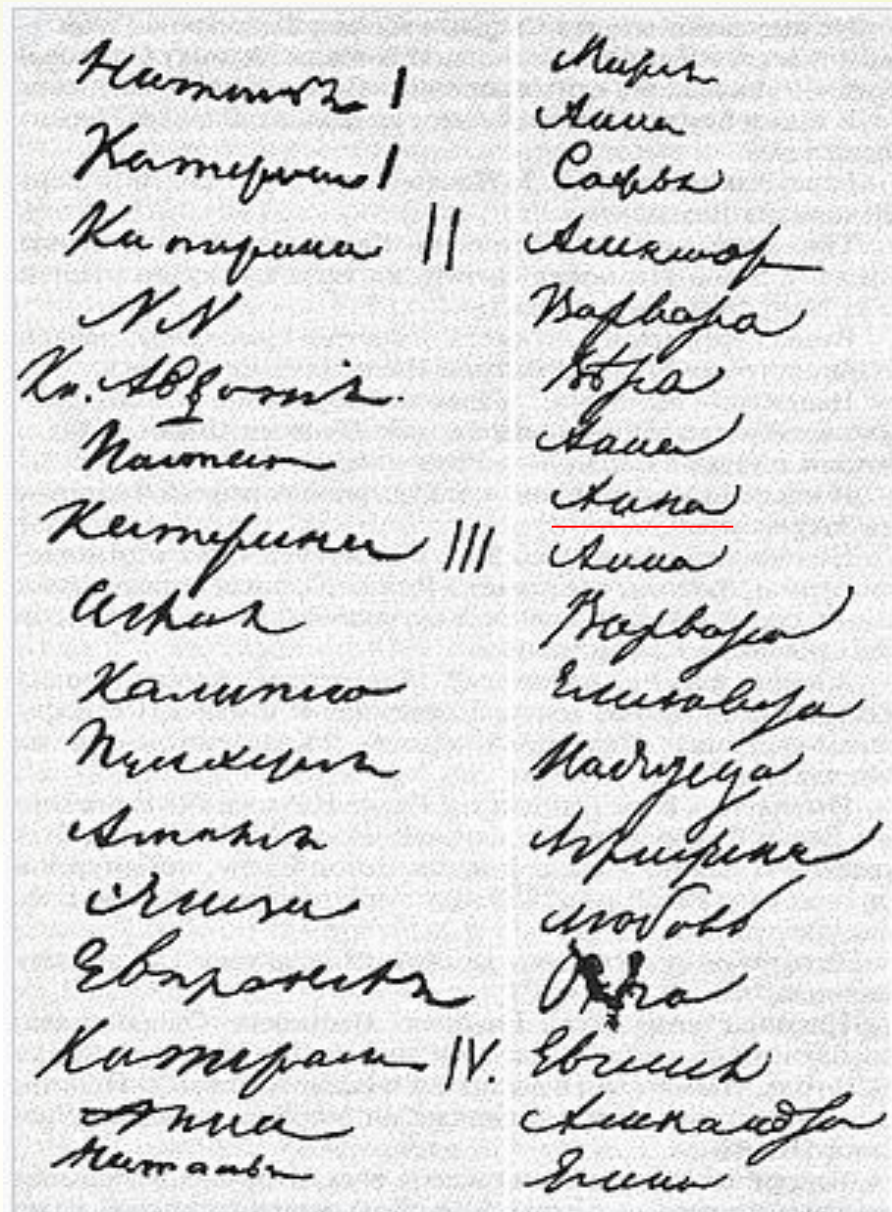 Наталья I
Катерина I
Катерина II
NN
Кн. Авдотія
Настасья
Катерина III
Аглая
Калипсо
Пульхерія
Амалія
Элиза
Евпраксея
Катерина IV.
Анна
Наталья
Марья
Анна
Софья
Александр
Варвара
Вѣра
Анна
Анна
Анна
Варвара
Елизавета
Надежда
Аграфена
Любовь
Ольга
Евгенія
Александра
Елена